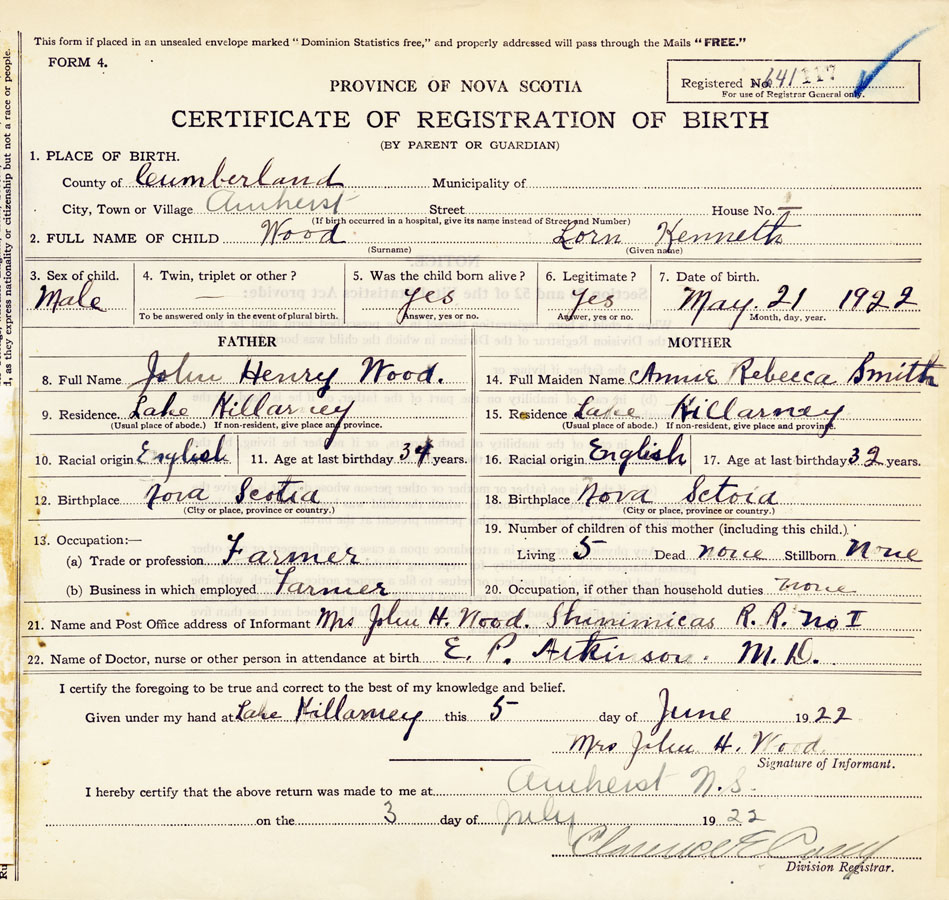 This form if placed in an unsealed envelope marked "Dominion Statistics free," and properly addressed will pass through the Mails "FREE."
FORM 4.
Registered No. 641117
For use of Registrar General only.
PROVINCE OF NOVA SCOTIA
CERTIFICATE OF REGISTRATION OF BIRTH
(BY PARENT OR GUARDIAN)
1. PLACE OF BIRTH.
County of Cumberland Municipality of
City, Town or Village Amherst Street House No. —
(If birth occurred in a hospital, give its name instead of Street and Number)
2. FULL NAME OF CHILD Wood Lorn Kenneth
(Surname) (Given name)
3. Sex of child. 4. Twin, triplet or other? 5. Was the child born alive? 6. Legitimate? 7. Date of birth.
Male — yes yes May 21 1922
To be answered only in the event of plural birth. Answer, yes or no. Answer, yes or no. Month, day, year.
FATHER MOTHER
8. Full Name John Henry Wood. 14. Full Maiden Name Annie Rebecca Smith
9. Residence Lake Killarney 15. Residence Lake Killarney
(Usual place of abode.) If non-resident, give place and province. (Usual place of abode.) If non-resident, give place and province.
10. Racial origin English 11. Age at last birthday 34 years. 16. Racial origin English 17. Age at last birthday 32 years.
12. Birthplace Nova Scotia 18. Birthplace Nova Sctoia
(City or place, province or country.) (City or place, province or country.)
13. Occupation:— 19. Number of children of this mother (including this child.)
(a) Trade or profession Farmer Living 5 Dead none Stillborn None
(b) Business in which employed Farmer 20. Occupation, if other than household duties none
21. Name and Post Office address of Informant Mrs John H. Wood. Shinimicas R. R. No I
22. Name of Doctor, nurse or other person in attendance at birth E. P. Atkinson. M. D.
I certify the foregoing to be true and correct to the best of my knowledge and belief.
Given under my hand at Lake Killarney this 5 day of June 1922
Mrs John H. Wood
Signature of Informant.
I hereby certify that the above return was made to me at Amherst N.S.
on the 3 day of July 1922
Clarence E Casey
Division Registrar.
d, as they express nationality or citizenship but not a race or people.